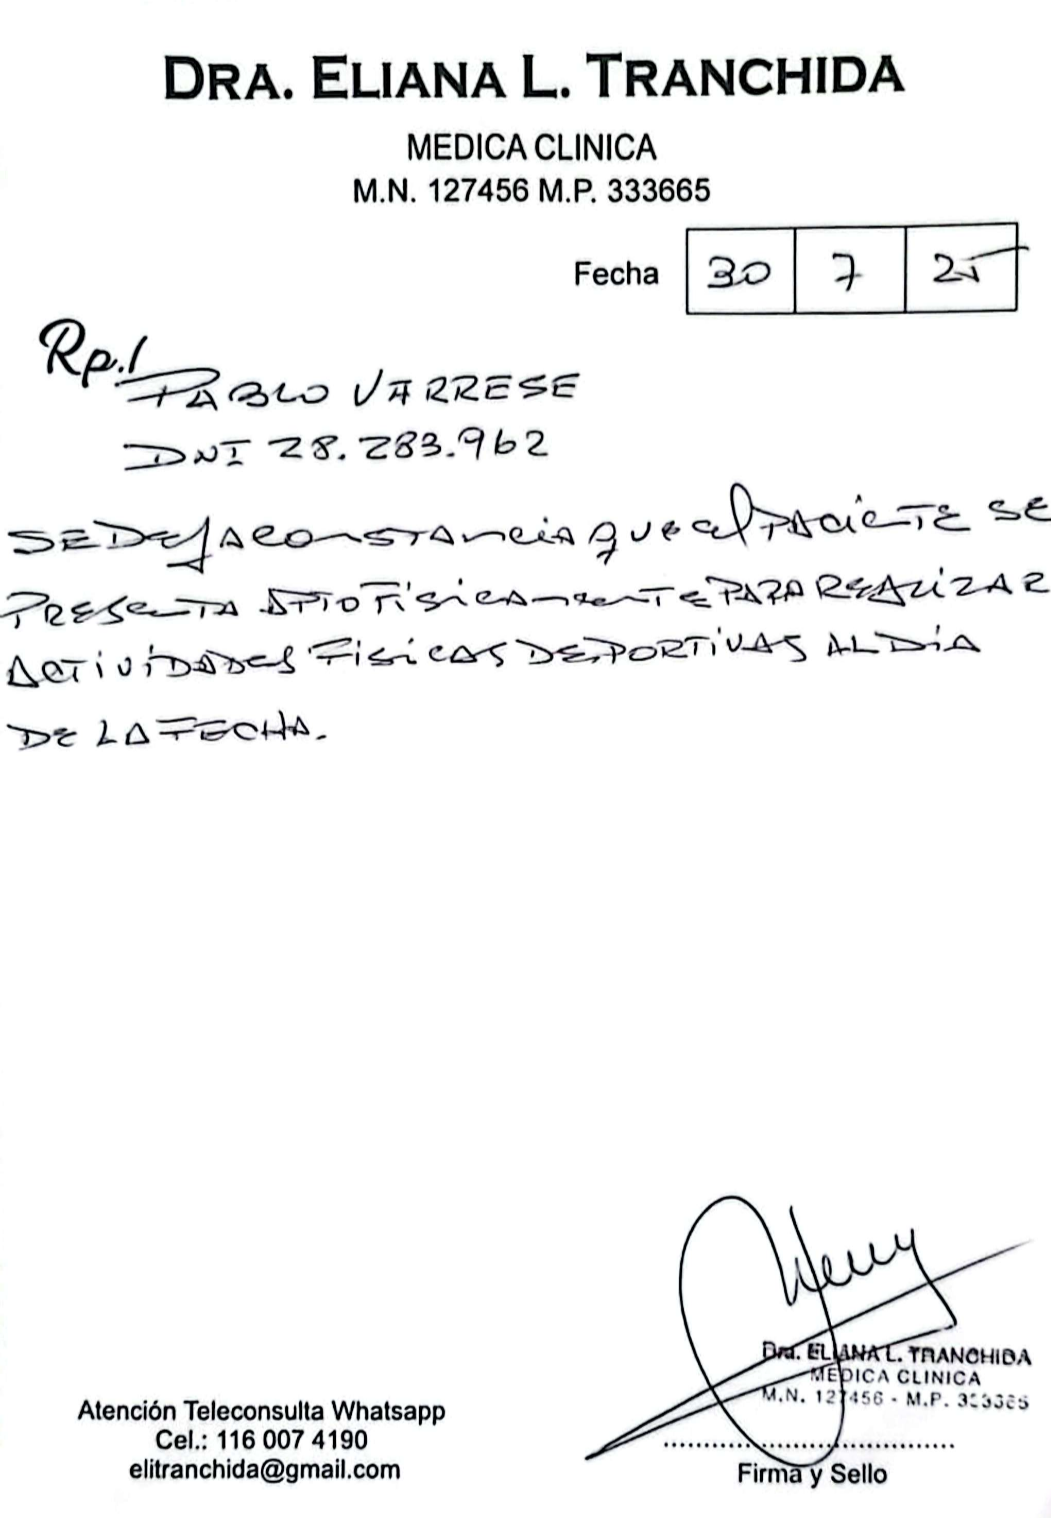 DRA. ELIANA L. TRANCHIDA
MEDICA CLINICA
M.N. 127456 M.P. 333665
Fecha 30 7 25
Rp./
PABLO VARRESE
DNI 28.283.962
SE DEJA CONSTANCIA que el PACIENTE SE
PRESENTA APTO FÍSICAMENTE PARA REALIZAR
ACTIVIDADES FISICAS DEPORTIVAS AL DÍA
DE LA FECHA.
Dra. ELIANA L. TRANCHIDA
MEDICA CLINICA
M.N. 127456 - M.P. 333665
Atención Teleconsulta Whatsapp
Cel.: 116 007 4190
elitranchida@gmail.com
Firma y Sello